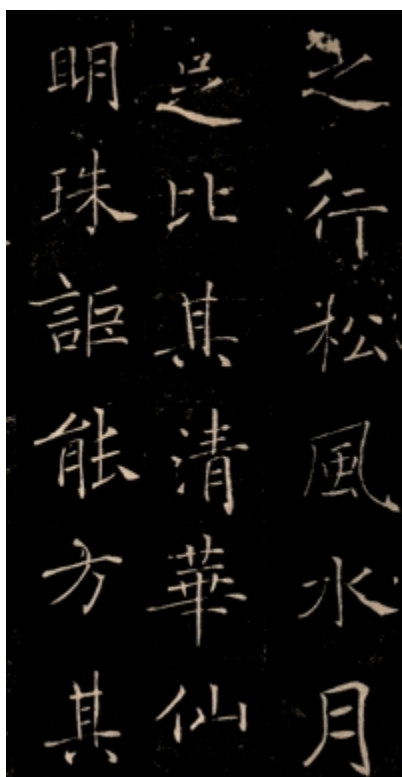 之行松風水月
足比其清華仙
明珠詎能方其